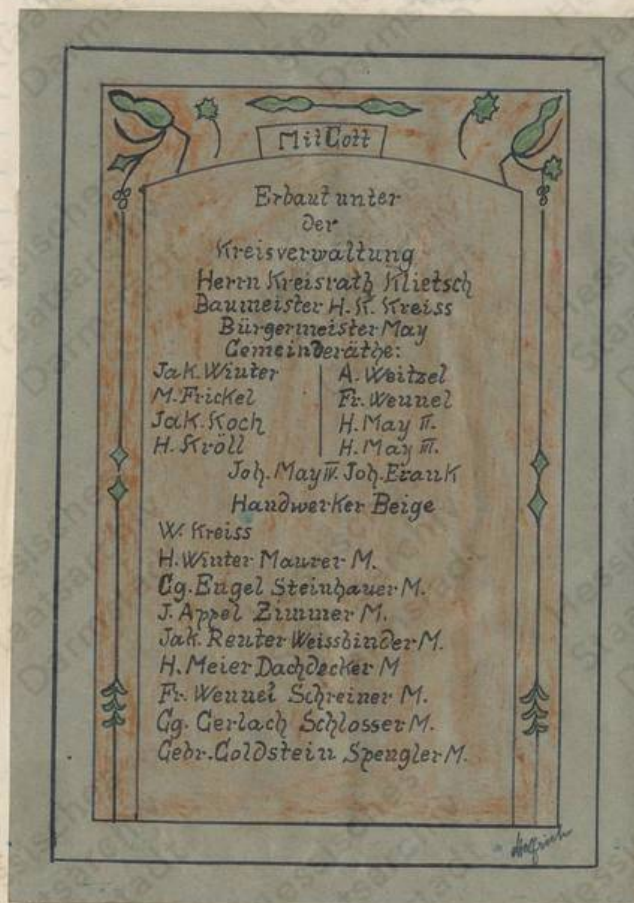 Mit Gott
Erbaut unter
der
Kreisverwaltung
Herrn Kreisrath Klietsch
Baumeister H. K. Kreiss
Bürgermeister May
Gemeinderäthe:
Jak. Winter
M. Frickel
Jak. Koch
H. Kröll
A. Weitzel
Fr. Wennel
H. May II.
H. May III.
Joh. May IV. Joh. Frank
Handwerker Beige
W. Kreiss
H. Winter Maurer M.
Gg. Engel Steinhauer M.
J. Appel Zimmer M.
Jak. Reuter Weissbinder M.
H. Meier Dachdecker M
Fr. Wennel Schreiner M.
Gg. Gerlach Schlosser M.
Gebr. Goldstein Spengler M.
Helfrich